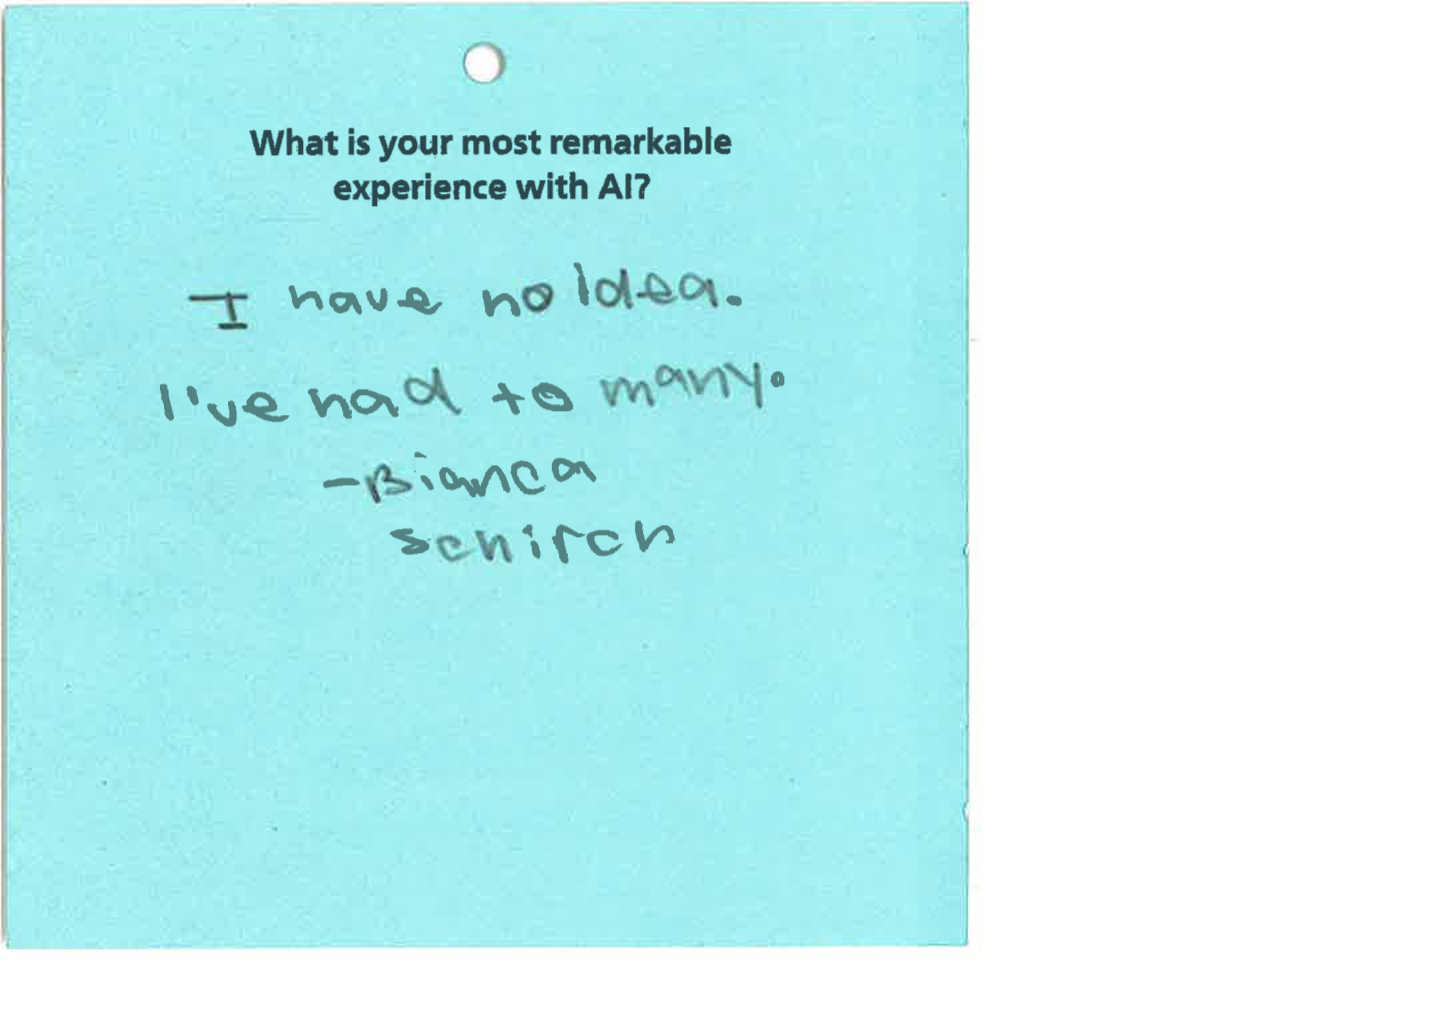 What is your most remarkable
experience with AI?
I have no Idea.
I've had to many.
-Bianca
Schirch